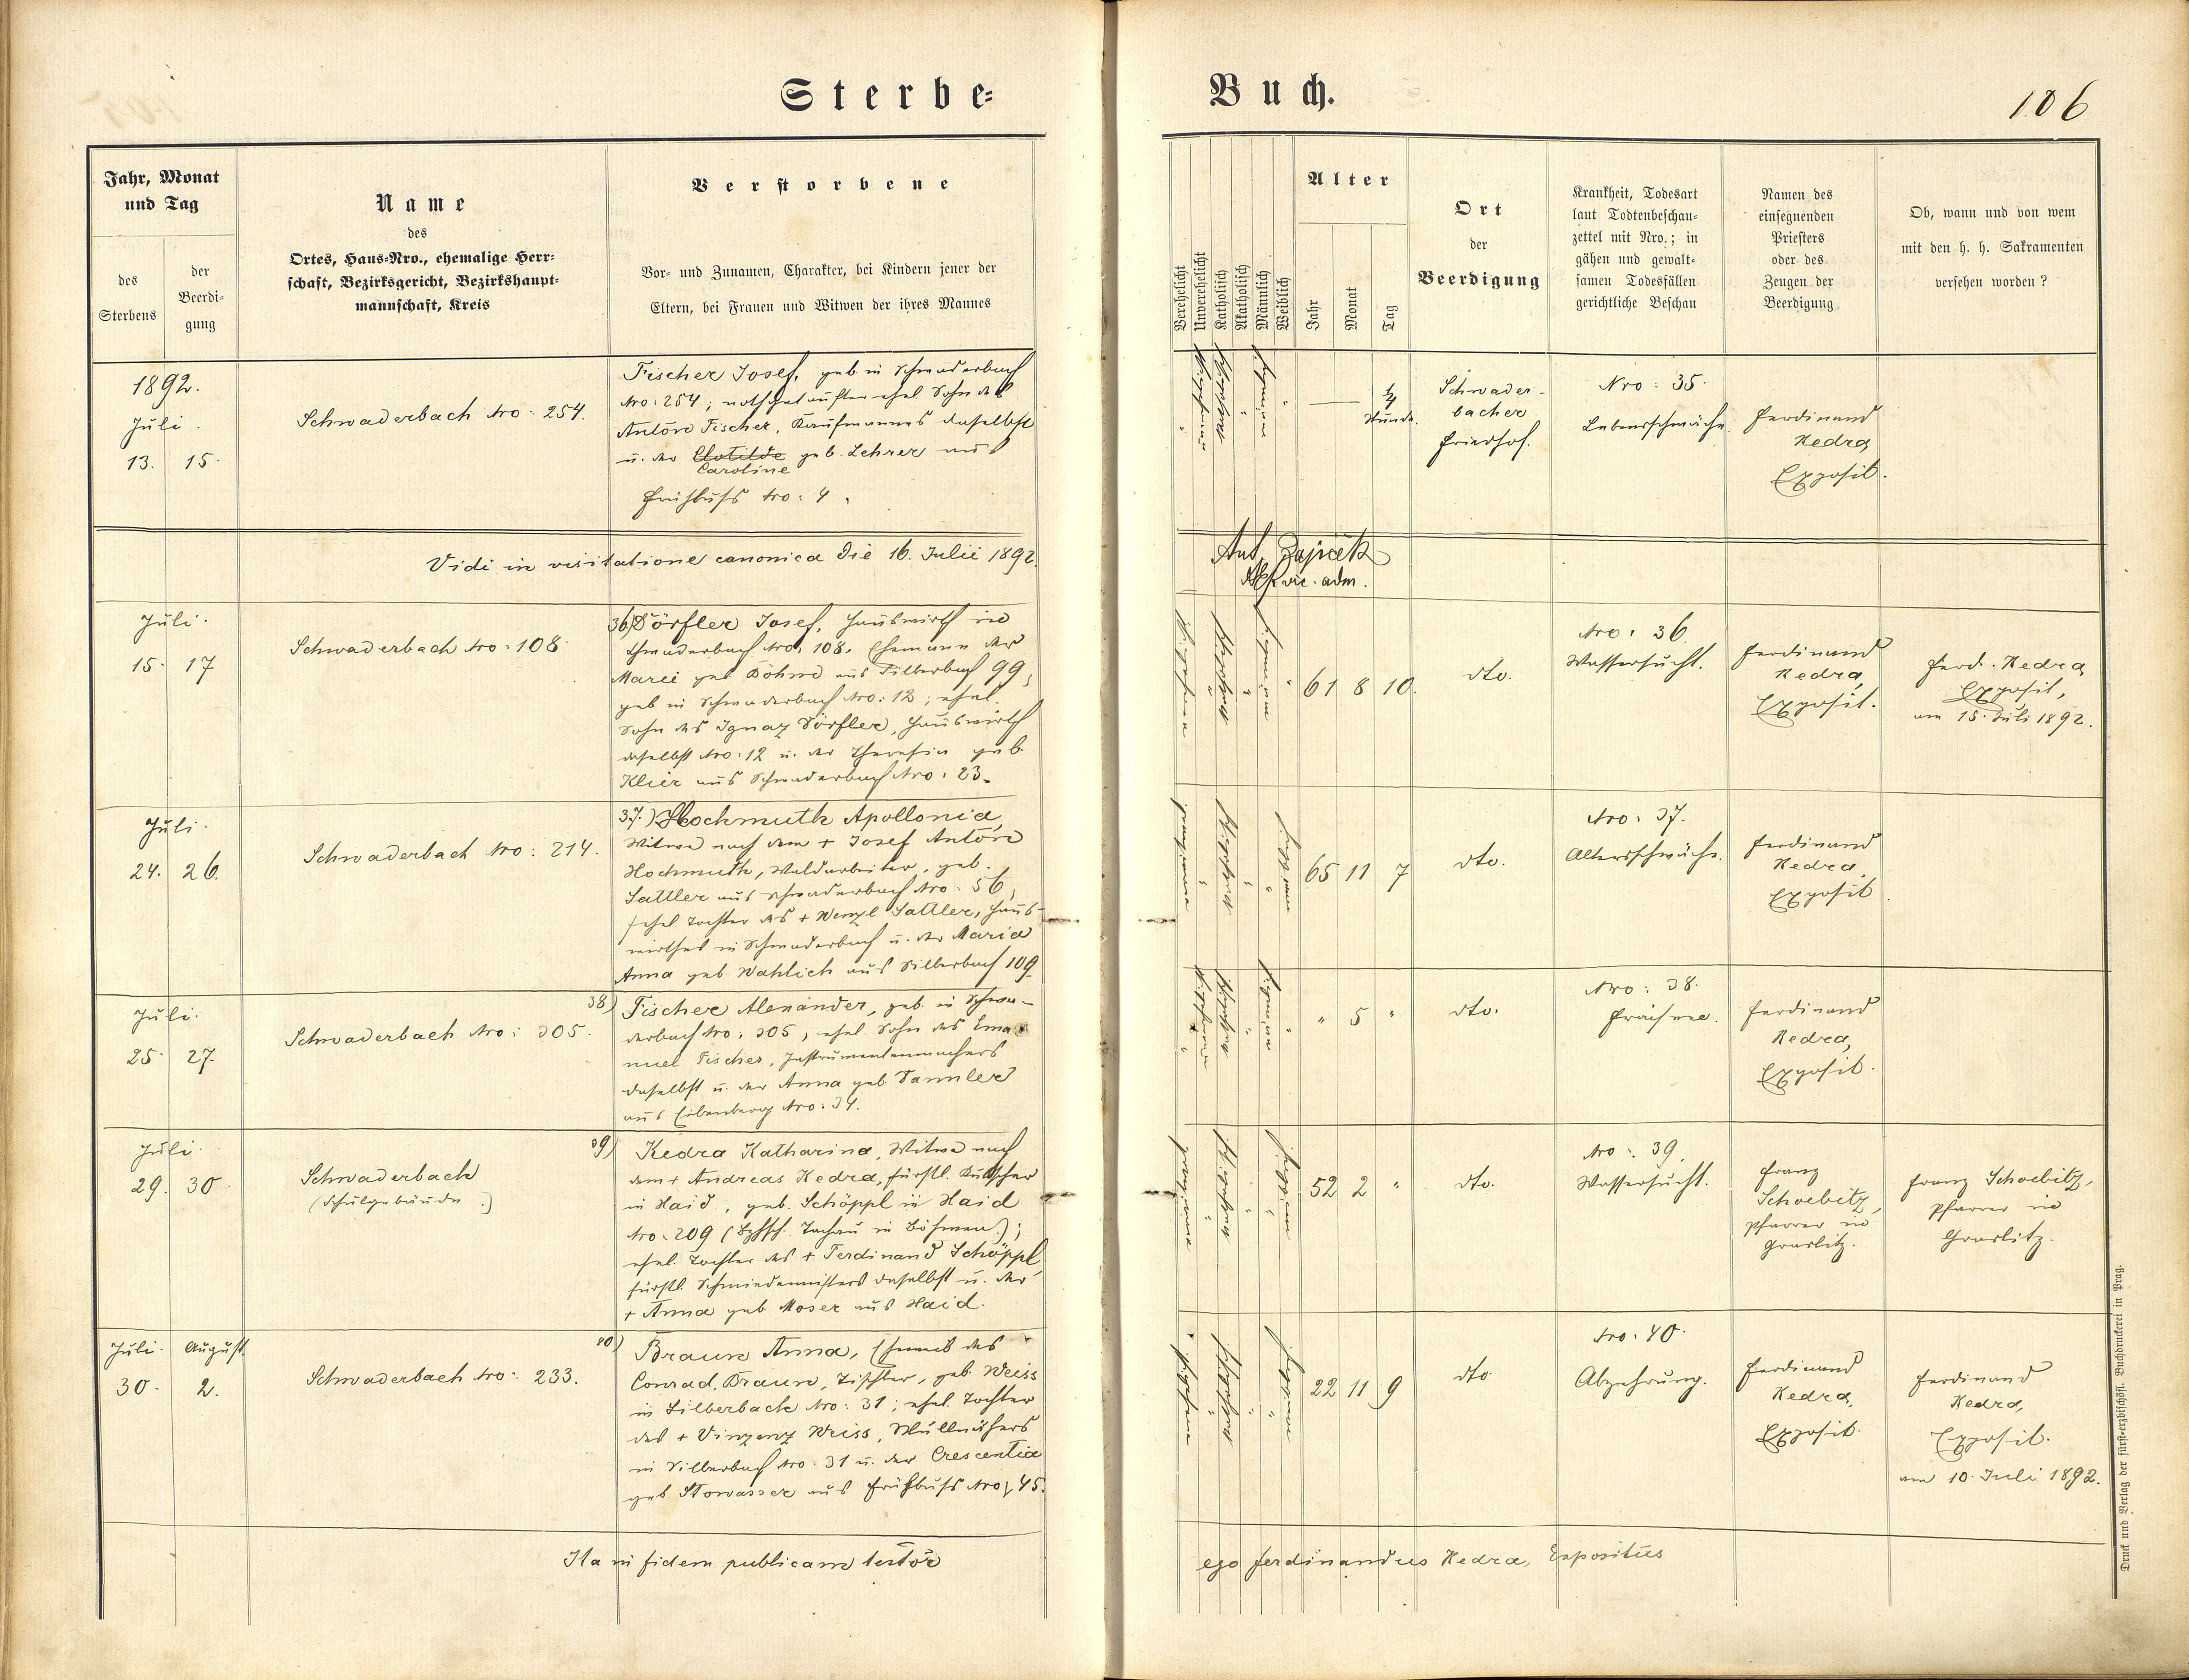 Sterbe=
Buch.
106
Jahr, Monat
und Tag
des
Sterbens
der
Beerdi-
gung
Name
des
Ortes, Haus-Nro., ehemalige Herr-
schaft, Bezirksgericht, Bezirkshaupt-
mannschaft, Kreis
Verstorbene
Vor- und Zunamen, Charakter, bei Kindern jener der
Eltern, bei Frauen und Witwen der ihres Mannes
Verehelicht
Unverehelicht
Katholisch
Akatholisch
Männlich
Weiblich
Alter
Jahr
Monat
Tag
Ort
der
Beerdigung
Krankheit, Todesart
laut Todtenbeschau-
zettel mit Nro.; in
gähen und gewalt-
samen Todesfällen
gerichtliche Beschau
Namen des
einsegnenden
Priesters
oder des
Zeugen der
Beerdigung
Ob, wann und von wem
mit den h. h. Sakramenten
versehen worden?
1892.
Juli.
13. 15.
Schwaderbach Nro: 254.
Fischer Josef, geb. in Schwaderbach
Nro: 254; nothgetaufter ehel. Sohn des
Anton Fischer, Kaufmannes daselbst
u. der Clotilde geb. Lehrer aus
Caroline
Frühbuß Nro: 4.
— ¼
Stunde.
Schwader-
bacher
Friedhof.
Nro: 35.
Lebensschwäche.
Ferdinand
Kedra,
Exposit.
Vidi in visitatione canonica die 16. Julii 1892.
Ant. Zajíček
vic. adm.
Juli.
15. 17
Schwaderbach Nro: 108.
36) Dörfler Josef, Hauswirth in
Schwaderbach Nro. 108. Ehemann der
Marie geb. Böhm aus Silberbach 99,
geb. in Schwaderbach Nro: 12; ehel.
Sohn des Ignaz Dörfler, Hauswirth
daselbst Nro: 12 u. der Theresia geb.
Klier aus Schwaderbach Nro: 23.
61 8 10.
dto.
Nro: 36.
Wassersucht.
Ferdinand
Kedra,
Exposit.
Ferd. Kedra,
Exposit,
am 15. Juli 1892.
Juli.
24. 26.
Schwaderbach Nro: 214.
37.) Hochmuth Apollonia,
Witwe nach dem + Josef Anton
Hochmuth, Waldarbeiter, geb.
Sattler aus Schwaderbach Nro: 56,
ehel. Tochter des + Wenzl Sattler, Haus-
wirthes in Schwaderbach u. der Maria
Anna geb. Wahlich aus Silberbach 109.
65 11 7
dto.
Nro: 37.
Altersschwäche.
Ferdinand
Kedra,
Exposit
Juli.
25. 27.
Schwaderbach Nro: 305.
38) Fischer Alexander, geb. in Schwa-
derbach Nro: 305, ehel. Sohn des Ema-
nuel Fischer, Instrumentenmachers
daselbst u. der Anna geb.
aus Eibenberg Nro: 34.
" 5 "
dto.
Nro: 38.
Fraisen.
Ferdinand
Kedra,
Exposit.
Juli.
29. 30.
Schwaderbach
(Schulgebäude.)
39) Kedra Katharina, Witwe nach
dem + Andreas Kedra, fürstl. Kutscher
in Haid, geb. Schöppl in Haid
Nro: 209 (Bzhsch. Tachau in Böhmen);
ehel. Tochter des + Ferdinand Schöppl,
fürstl. Schmiedemeisters daselbst u. der
+ Anna geb. Moser aus Haid.
52 2 "
dto.
Nro: 39.
Wassersucht.
Franz
Schoebitz,
Pfarrer in
Graslitz.
Franz Schoebitz,
Pfarrer in
Graslitz.
Juli. August.
30. 2.
Schwaderbach Nro: 233.
40) Braun Anna, Eheweib des
Conrad Braun, Tischler, geb. Weiss
in Silberbach Nro: 31; ehel. Tochter
des + Vinzenz Weiss,
in Silberbach Nro: 31 u. der Crescentia
geb. Stowasser aus Frühbuß Nro: 45.
22 11 9
dto.
Nro: 40.
Abzehrung.
Ferdinand
Kedra,
Exposit.
Ferdinand
Kedra,
Exposit.
am 10. Juli 1892.
Ita in fidem publicam testor
ego Ferdinandus Kedra, Expositus
Druck und Verlag der fürst-erzbischöfl. Buchdruckerei in Prag.